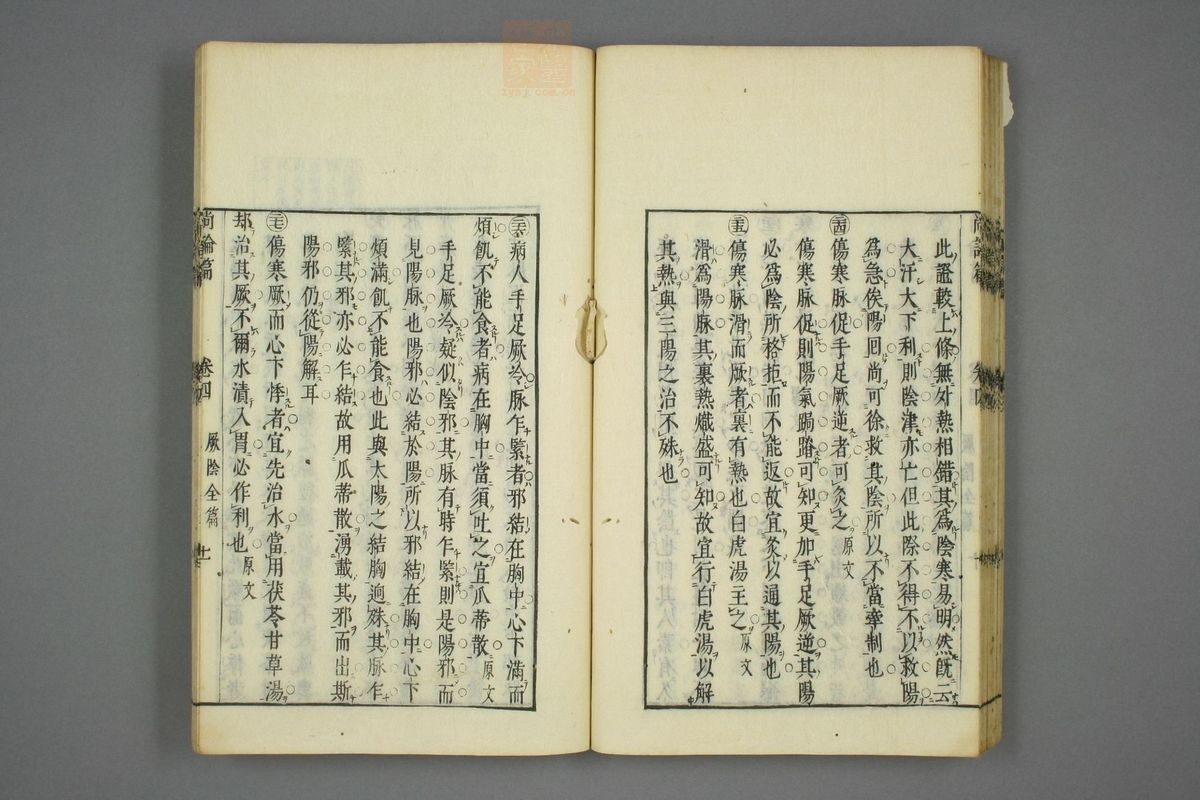 此證較上條無外熱相錯其為陰寒易明然既云
大汗大下利則陰津亦亡但此際不得不以救陽
為急俟陽回尚可徐救其陰所以不當牽制也
傷寒脉促手足厥逆者可灸之原文
傷寒脉促則陽氣跼蹐可知更加手足厥逆其陽
必為陰所格拒而不能返故宜灸以通其陽也
傷寒脉滑而厥者裏有熱也白虎湯主之原文
滑為陽脉其裏熱熾盛可知故宜行白虎湯以解
其熱與三陽之治不殊也
病人手足厥冷脉乍緊者邪結在胸中心下滿而
煩飢不能食者病在胸中當須吐之宜瓜蒂散原文
手足厥冷疑似陰邪其脉有時乍緊則是陽邪而
見陽脉也陽邪必結於陽所以邪結在胸中心下
煩滿飢不能食也此與太陽之結胸逈殊其脉乍
緊其邪亦必乍結故用瓜蒂散湧載其邪而出斯
陽邪仍從陽解耳
傷寒厥而心下悸者宜先治水當用茯苓甘草湯
却治其厥不爾水漬入胃必作利也原文
尚論篇 卷四 厥陰全篇 十一
zysj.com.cn